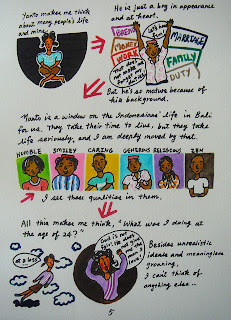 Yanto makes me think
about many people's life
and mine.
He is just a boy in appearance
and at heart.
BREAD
MONEY
WORK
MARRIAGE
FAMILY
DUTY
But he's so mature because of
his background.
Yanto is a window on the Indonesians' life in Bali
for us. They take their time to live, but they take
life seriously, and I am deeply moved by that.
HUMBLE SMILEY CARING GENEROUS RELIGIOUS ZEN
I see these qualities in them.
All this makes me think, "What was I doing at
the age of 24?"
at a loss
God is not
fair!
Besides unrealistic
ideals and meaningless
groaning,
I can't think of
anything else..
5